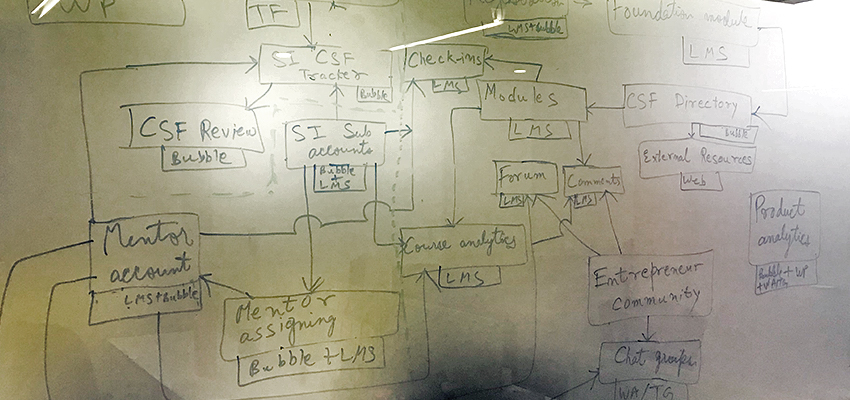 WP
TF
WMS+Bubble
Foundation module
LMS
SI CSF
Tracker
Bubble
Check-ins
LMS
Modules
LMS
CSF Directory
Bubble
CSF Review
Bubble
SI Sub
accounts
Bubble
+
LMS
External Resources
Web
Forum
LMS
Comments
LMS
Product
analytics
Bubble + WP
Mentor
account
LMS+Bubble
Course analytics
LMS
Entrepreneur
community
Mentor
assigning
Bubble + LMS
Chat groups
WA/TG